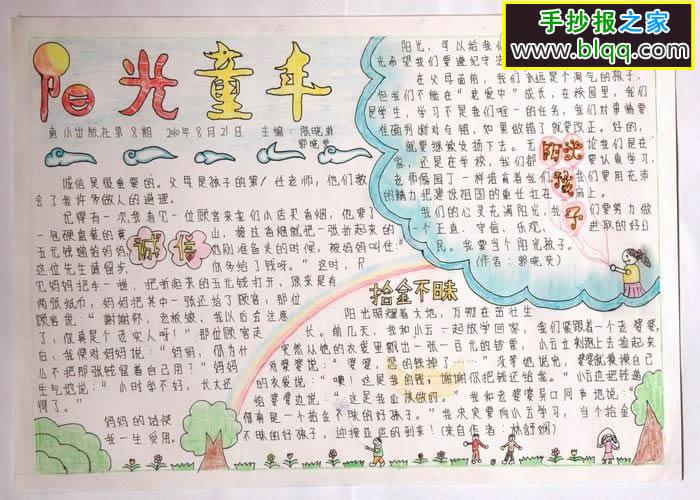 手抄报之家
www.blqq.com
阳光童年
南小出版社第8期 2010年8月21日 主编：陈晓琪
郭晓英
诚信
诚信是很重要的。父母是孩子的第1任老师，他们教
会了我许多做人的道理。
记得有一次，我看见一位顾客来我们小店买香烟，他要了
一包硬盒装的黄
山，接过香烟就把一张折起来的
五元钱递给妈妈
他刚准备走的时候，被妈妈叫住：“
这位先生请留步，
你多给了钱呀。”这时，只
见妈妈把手一摊，把折起来的五元钱打开，原来是有
两张纸币，妈妈把其中一张还给了顾客，那位
顾客说：“谢谢你，老板娘，我以后会注意
了，你真是个老实人呀！”那位顾客走
后，我便对妈妈说：“妈妈，你为什
么不把那张钱留着自己用？”妈妈
生气地说：“小时学不好，长大还
得了。”
妈妈的话使
我一生受用。
阳光，可以给我们
光希望我们要遵纪守法
在父母面前，我们永远是个淘气的孩子，
但我们不能在“溺爱中”成长，在校园里，我们
是学生，学习不是我们唯一的任务，我们对事情要
准确判断对与错，如果做错了就要改正。好的，
就要继续发扬下去。无论我们是在
家，还是在学校，我们都要认真学习，
老师像园丁一样培育着我们我们要用充沛
的精力把建设祖国的重任扛在肩上。
我们的心灵充满阳光，我们要努力做
一个正直、守信、乐观、进取的好公
民。我要当个阳光孩子。
（作者：郭晓英）
阳光孩子
拾金不昧
阳光照耀着大地，万物在茁壮生
长。前几天，我和小云一起放学回家，我们紧跟着一个老婆婆，
突然从她的衣袋里飘出一张一百元的钞票，小云立刻跑上去捡起来
对婆婆说：“婆婆，您的钱掉了……”没等他说完，婆婆就摸摸自己
的衣袋说：“噢！这是我的钱，谢谢你把钱还给我。”小云边把钱递
给婆婆边说：“这是我应该做的。”我和老婆婆异口同声地说：“
你真是一个拾金不昧的好孩子。”我决定要向小云学习，当个拾金
不昧的好孩子，迎接亚运的到来！（来自作者：林舒娴）